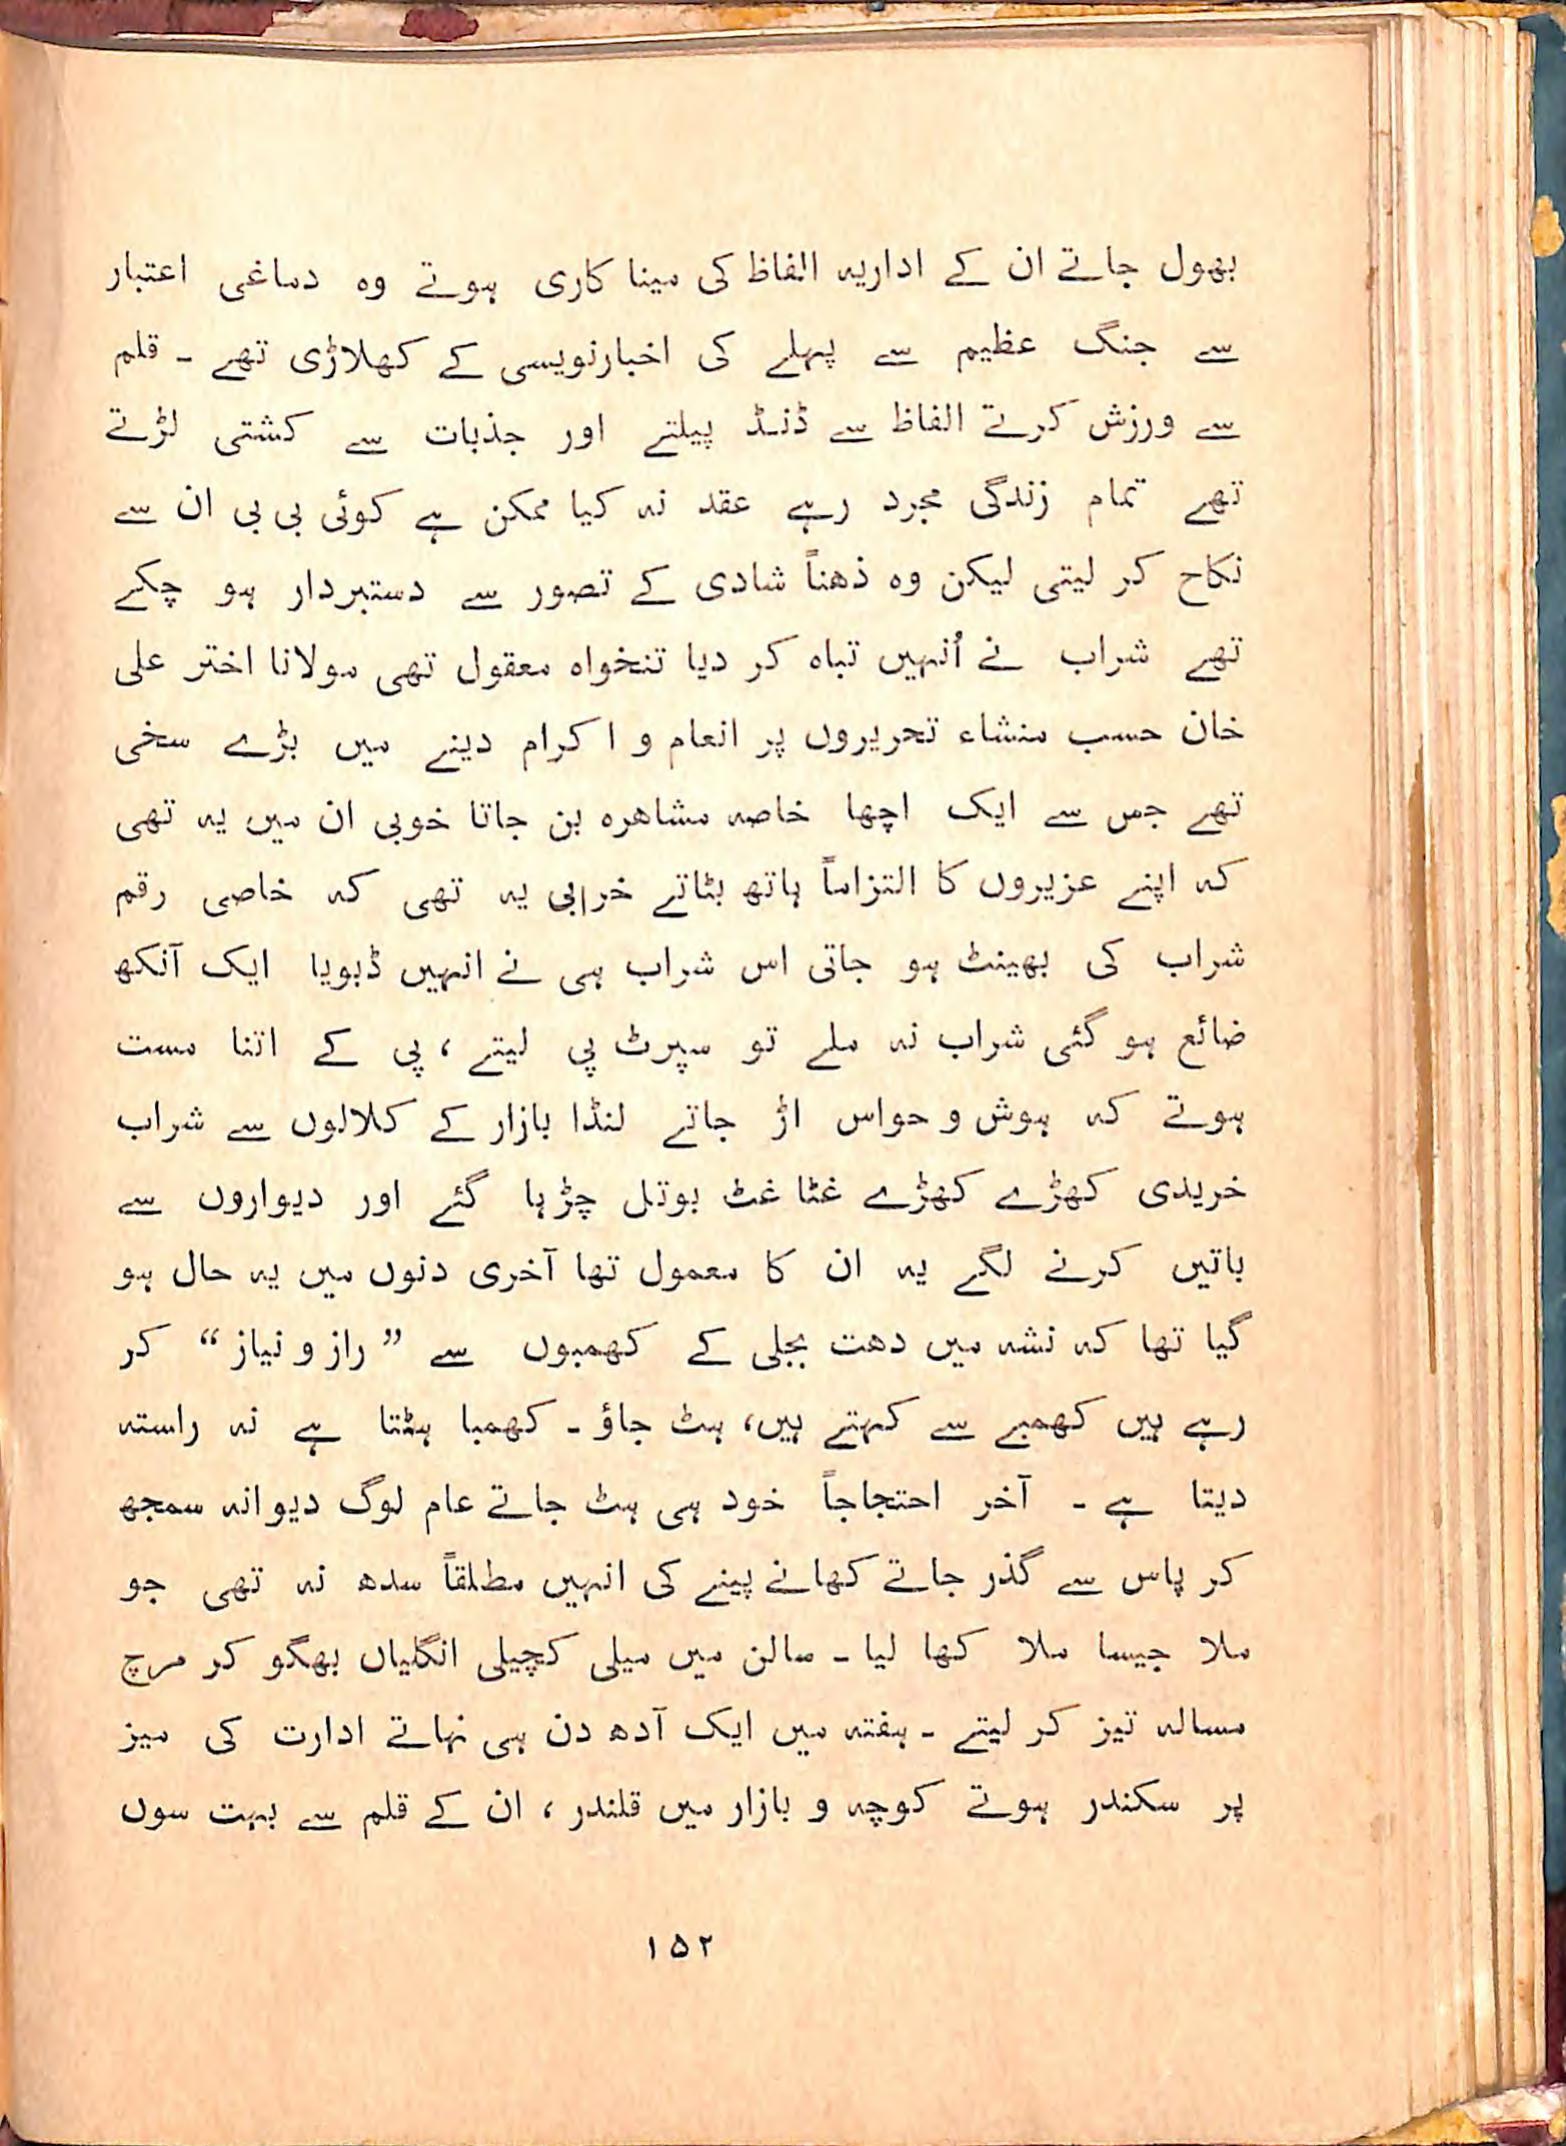 بھول جاتے ان کے اداریہ الفاظ کی مینا کاری ہوتے وہ دماغی اعتبار
سے جنگ عظیم سے پہلے کی اخبارنویسی کے کھلاڑی تھے ۔ قلم
سے ورزش کرتے الفاظ سے ڈنڈ پیلتے اور جذبات سے کشتی لڑتے
تھے تمام زندگی مجرد رہے عقد نہ کیا ممکن ہے کوئی بی بی ان سے
نکاح کر لیتی لیکن وہ ذھناً شادی کے تصور سے دستبردار ہو چکے
تھے شراب نے اُنہیں تباہ کر دیا تنخواہ معقول تھی مولانا اختر علی
خان حسب منشاء تحریروں پر انعام و اکرام دینے میں بڑے سخی
تھے جس سے ایک اچھا خاصہ مشاھرہ بن جاتا خوبی ان میں یہ تھی
کہ اپنے عزیروں کا التزاماً ہاتھ بٹاتے خرابی یہ تھی کہ خاصی رقم
شراب کی بھینٹ ہو جاتی اس شراب ہی نے انہیں ڈبویا ایک آنکھ
ضائع ہو گئی شراب نہ ملے تو سپرٹ پی لیتے ، پی کے اتنا مست
ہوتے کہ ہوش و حواس اڑ جاتے لنڈا بازار کے کلالوں سے شراب
خریدی کھڑے کھڑے غٹا غٹ بوتل چڑہا گئے اور دیواروں سے
باتیں کرنے لگے یہ ان کا معمول تھا آخری دنوں میں یہ حال ہو
گیا تھا کہ نشہ میں دھت بجلی کے کھمبوں سے ” راز و نیاز “ کر
رہے ہیں کھمبے سے کہتے ہیں، ہٹ جاؤ ۔ کھمبا ہٹتا ہے نہ راستہ
دیتا ہے ۔ آخر احتجاجاً خود ہی ہٹ جاتے عام لوگ دیوانہ سمجھ
کر پاس سے گذر جاتے کھانے پینے کی انہیں مطلقاً سدھ نہ تھی جو
ملا جیسا ملا کھا لیا ۔ سالن میں میلی کچیلی انگلیاں بھگو کر مرچ
مسالہ تیز کر لیتے ۔ ہفتہ میں ایک آدھ دن ہی نہاتے ادارت کی میز
پر سکندر ہوتے کوچہ و بازار میں قلندر ، ان کے قلم سے بہت سوں
۱۵۲